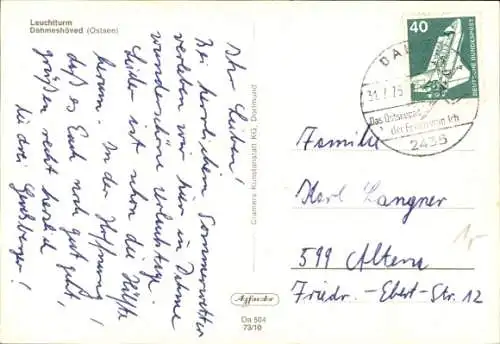 Leuchtturm
Dahmeshöved (Ostsee)
Ihr Lieben
Bei herrlichem Sommerwetter
verleben wir hier in Dahme
wunderschöne Urlaubstage.
Leider ist schon die Hälfte
herum. In der Hoffnung,
daß es Euch noch gut geht,
grüßen recht herzlich
die drei
Cramers Kunstanstalt KG, Dortmund
Agfacolor
Da 504
73/10
40
DEUTSCHE BUNDESPOST
Das Ostseebad
2435
Familie
Karl Langner
599 Altena
Friedr.-Ebert-Str. 12
1,-